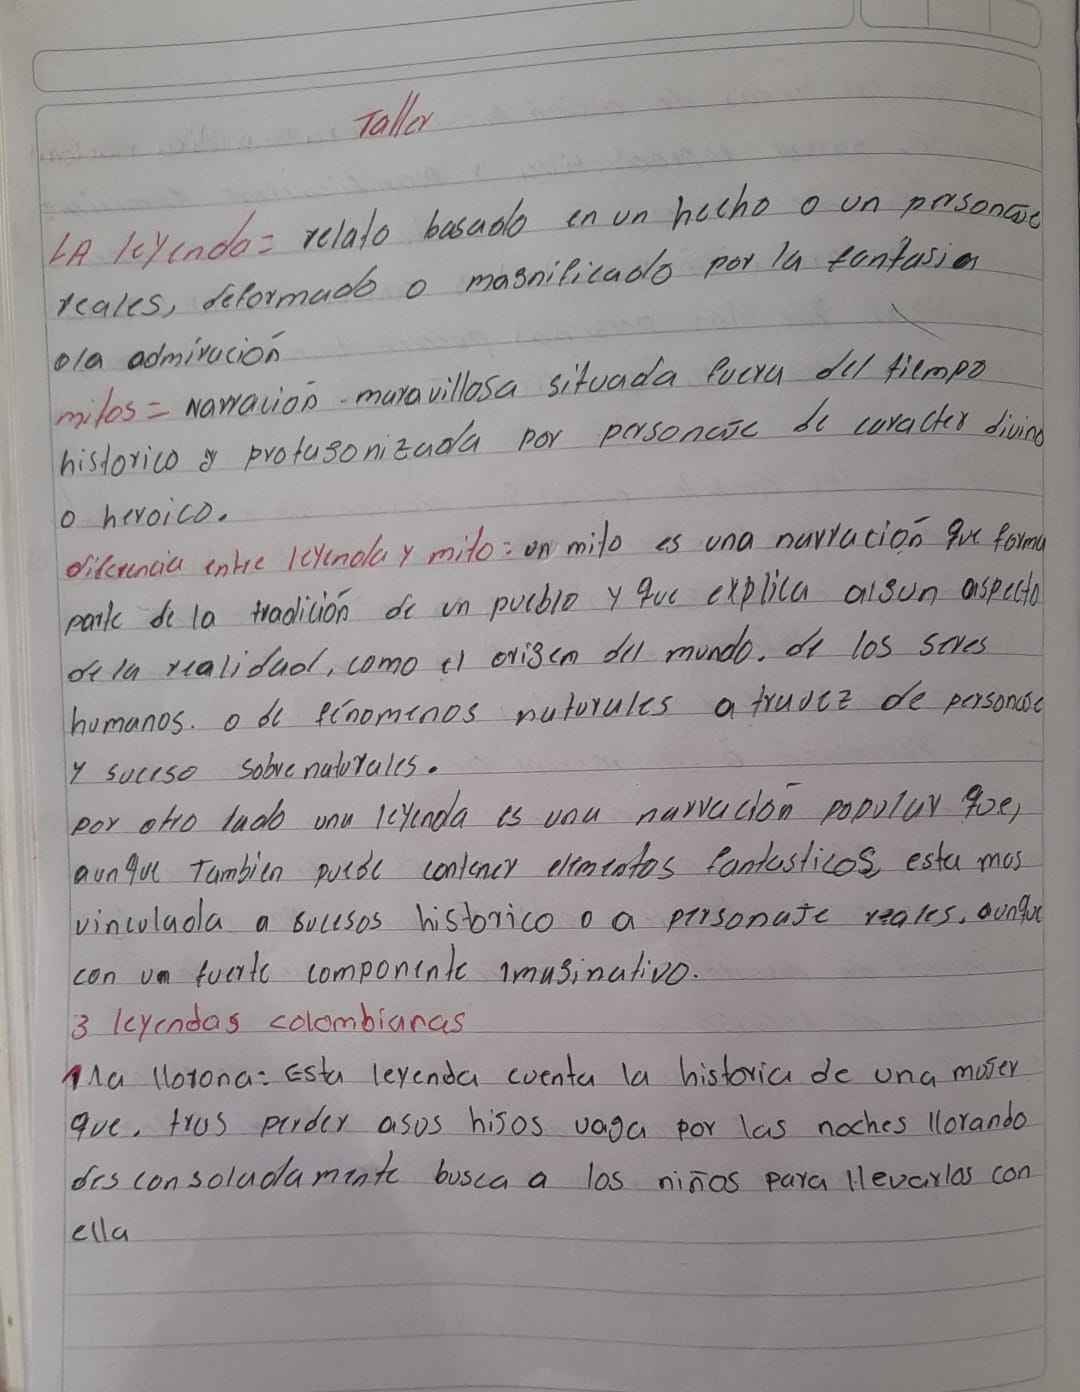 Taller
LA leyenda= relato basado en un hecho o un personaje
reales, deformado o magnificado por la fantasia
o la admiración
mitos= Narración maravillosa situada fuera del tiempo
historico y protagonizada por personaje de caracter divino
o heroico.
diferencia entre leyenda y mito: un mito es una narración que forma
parte de la tradición de un pueblo y que explica algun aspecto
de la realidad, como el origen del mundo. de los seres
humanos. o de fenomenos naturales a travez de personaje
y suceso sobrenaturales.
por otro lado una leyenda es una narración popular que,
aunque Tambien puede contener elementos fantasticos, esta mas
vinculada a sucesos historico o a personaje reales, aunque
con un fuerte componente imaginativo.
3 leyendas colombianas
1 la llorona: Esta leyenda cuenta la historia de una mujer
que, tras perder asus hijos vaga por las noches llorando
desconsoladamente busca a los niños para llevarlos con
ella